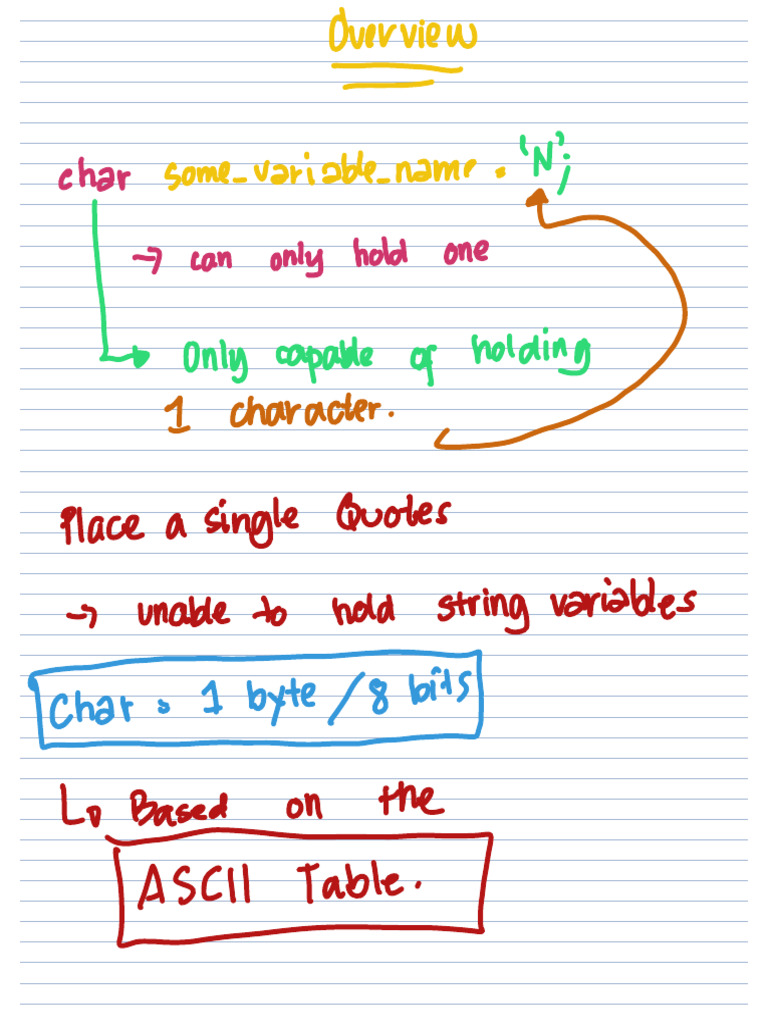 Overview
char some_variable_name = 'N';
→ can only hold one
Only capable of holding
1 character.
Place a single Quotes
→ unable to hold string variables
Char = 1 byte / 8 bits
↳ Based on the
ASCII Table.